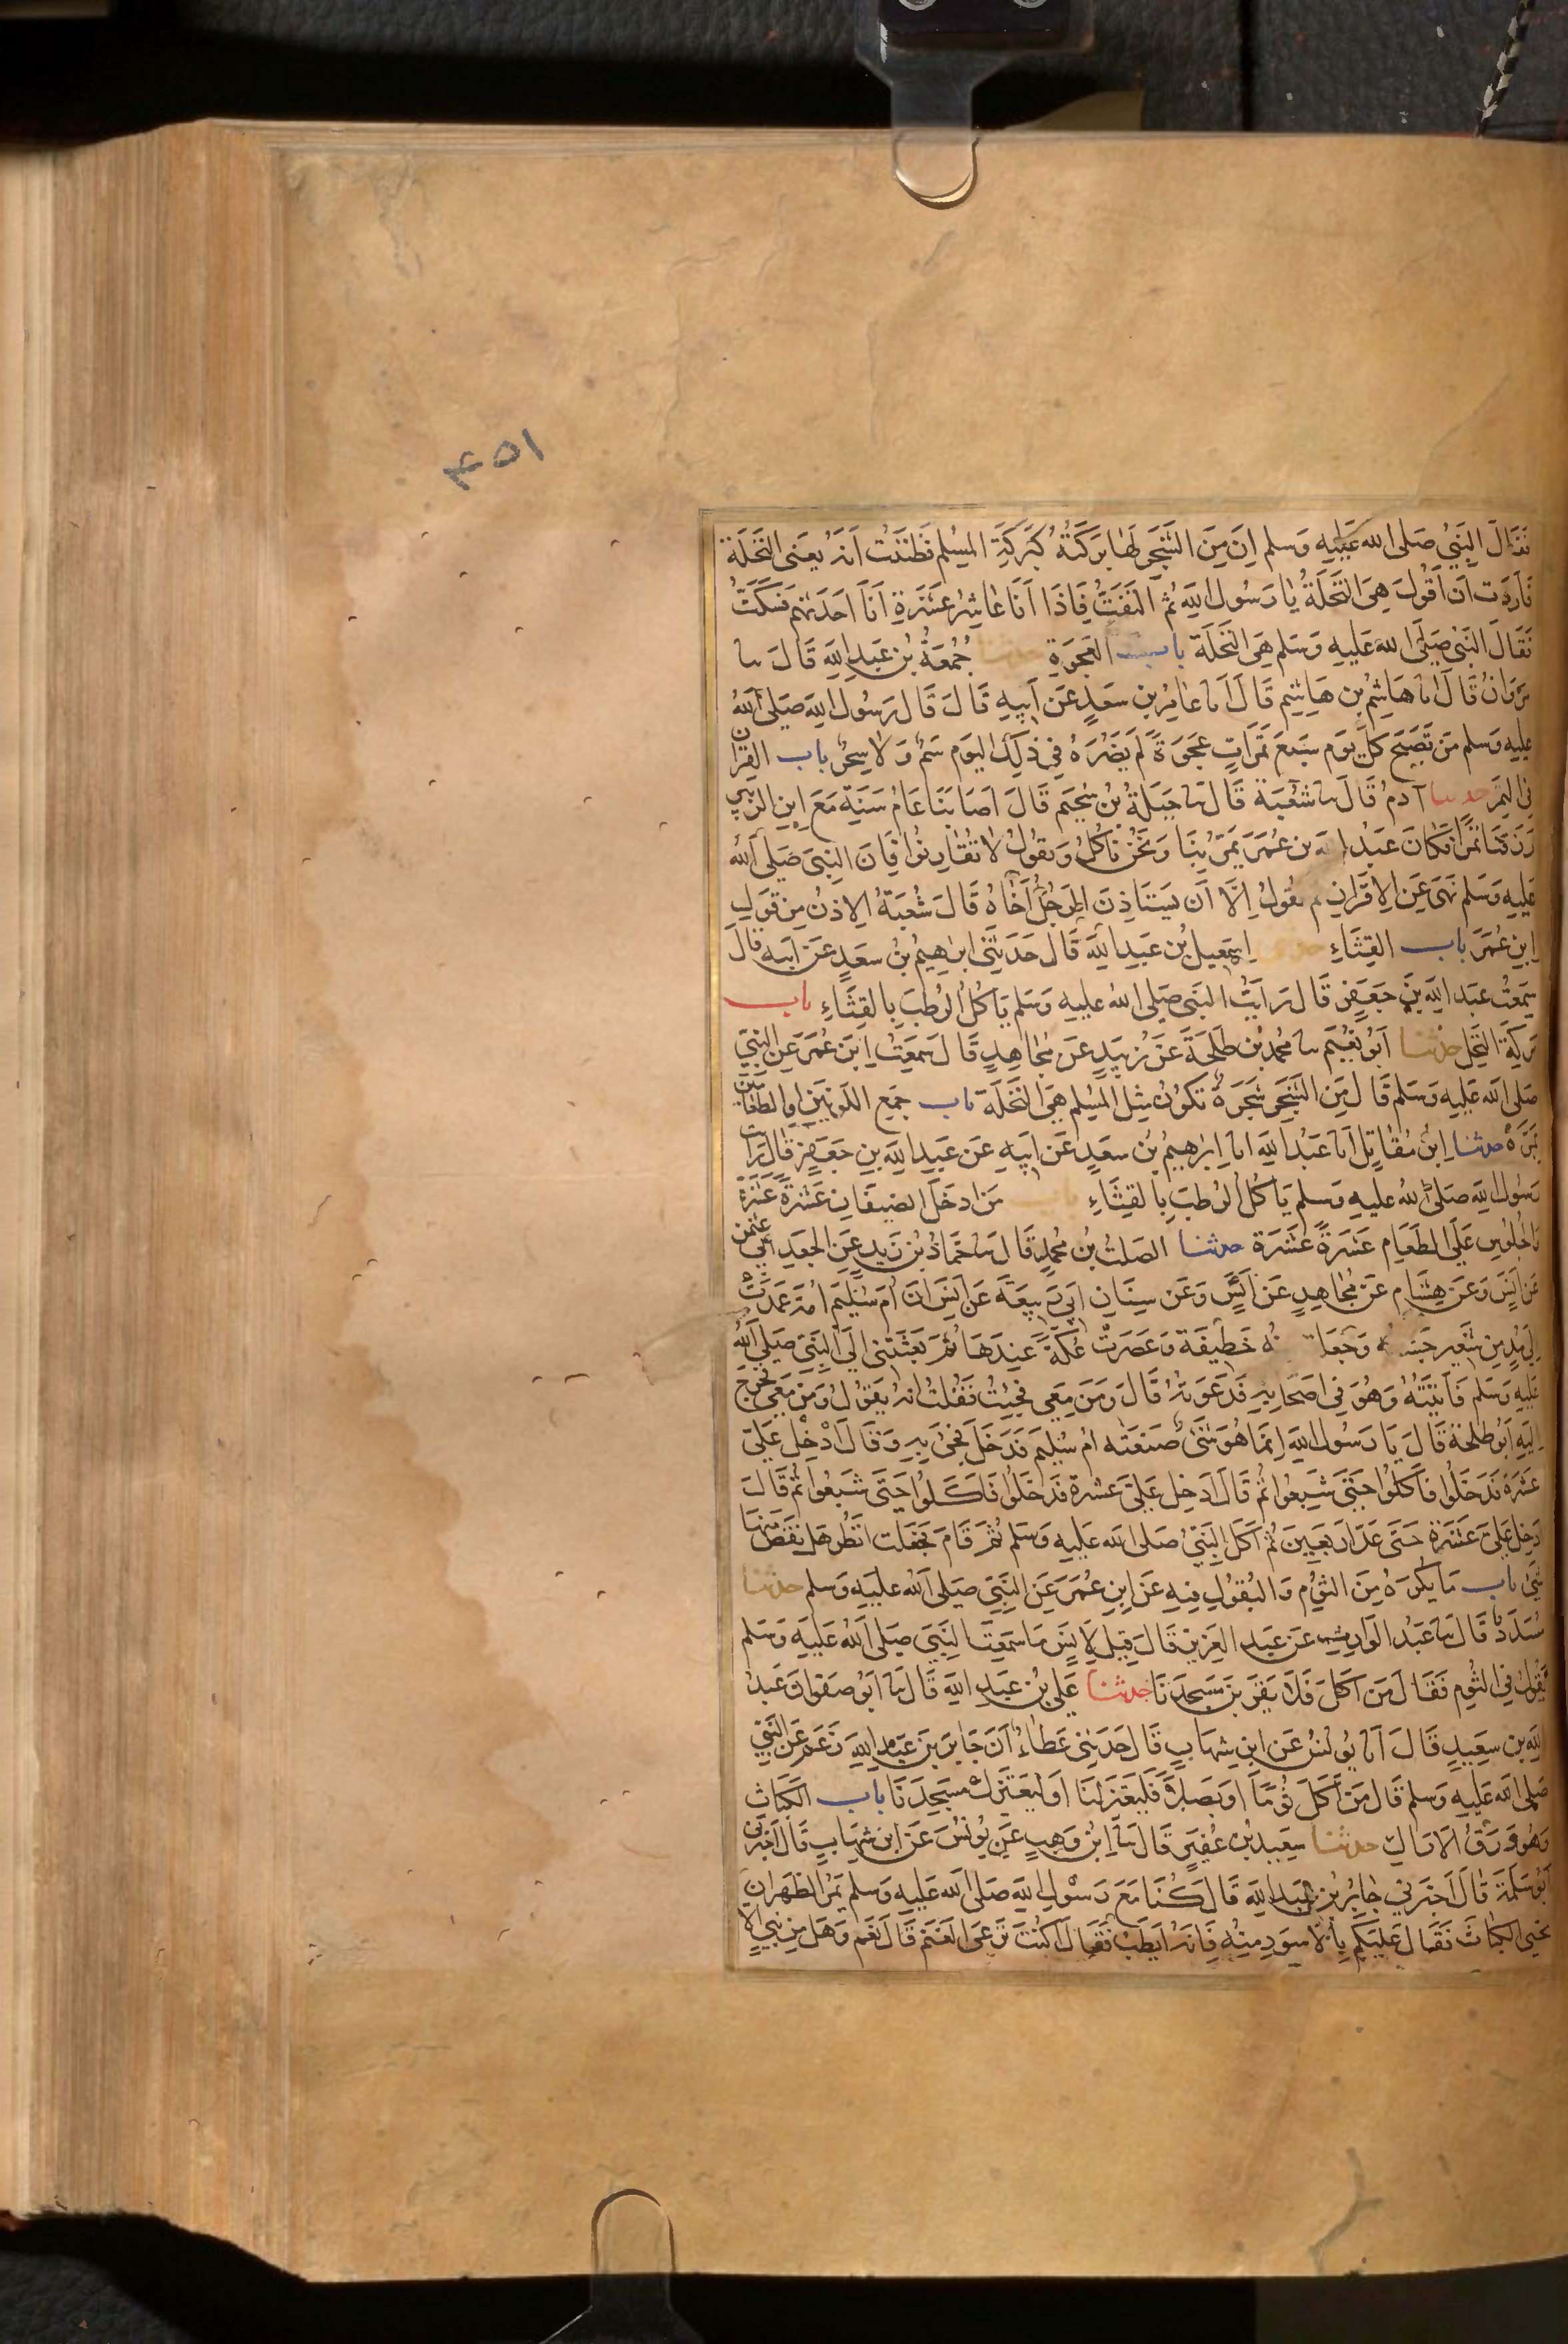 ٤٥١
فَقَالَ النَّبِيُّ صَلَى الله عَلَيْهِ وَسلم اِنَ مِنَ الشَّجَرِ لَهَا بَرَكَةٌ كَبَرَكَةِ المسْلِم فَظَنَنْتُ اَنَّهُ يَعْنِى النَّخْلَةَ
فَاَرَدْت اَن اَقُولَ هِىَ النَّخْلَةُ يَا رَسُولَ اللَّهِ ثُمَّ الْتَفَتُّ فَاِذَا اَنَا عَاشِرُ عَشَرَةٍ اَنَا اَحْدَثُهُمْ فَسَكَتُّ
فَقَالَ النَّبِىُّ صَلَى الله عَلَيهِ وَسَلم هِىَ النَّخْلَة باب العَجْوَةِ حدثنا جُمْعَةُ بْنُ عَبْدِ اللَّهِ قَالَ ثنا
مَرْوَانُ قَالَ انا هَاشِمُ بن هَاشِم قَالَ اَنا عَامِرُ بن سَعْدٍ عَن اَبِيهِ قَالَ قَالَ رَسُولُ اللَّهِ صَلى اللهُ
عليه وَسلم مَن تَصَبَّحَ كُلَّ يوَم سَبعَ تَمَرَاتٍ عَجوَةً لَم يَضُرَّهُ فِي ذلِكَ اليَوم سَمٌّ وَلَا سِحْرٌ باب القِرَانِ
فِى التمْرِ حدثنا آدمُ قَالَ ثنا شعْبَة قَالَ ثنا جَبَلَةُ بْنُ سُحَيم قَالَ اَصَابَنَا عَامُ سَنَةٍ مَعَ ابنِ الزبير
رَزَقَنَا تَمْرًا فَكَانَ عَبْدُ الله بن عُمَرَ يَمُرّ بِنَا وَنَحْنُ نَأكُلُ وَيقولُ لَا تُقَارِنُوا فَاِنَ النَّبِىَ صَلى اللهُ
عَلِيهِ وَسَلم نَهَى عَنِ الاِقْرَانِ ثم يَقُولُ اِلَّا اَن يَسْتَاذِنَ الرَجُلُ اَخَاهُ قَالَ شُعْبَةُ الاِذنُ مِن قَولِ
ابنِ عُمَرَ باب القِثَّاءِ اِسْمعِيلُ بْن عَبدِ اللَّهِ قَالَ حَدَثَنى ابرَهِيمُ بنُ سَعدٍ عَن اَبيه قَالَ
سمِعْتُ عَبْدَ اللهِ بْنَ جَعْفَرٍ قَالَ رَاَيْتُ النبَى صَلى اللهُ عليهِ وَسَلم يَأكُلُ الرُطَبَ بِالقِثَّاءِ باب
بَركَةِ النخلِ حدثنا اَبُو نعُيْمٍ ثنا محمدُ بن طَلحَةَ عَنْ زُبَيدٍ عَن مُجَاهِدٍ قَالَ سَمِعْتُ ابنَ عُمَرَ عَن النبىِّ
صَلى الله عَلِيهِ وَسَلم قَالَ مِنَ الشَّجَرِ شَجَرَةٌ تَكُونُ مِثلَ المُسْلِم هِىَ النَّخْلَة باب جمْع اللَوْنَيْنِ اَوِ الطعَامَيْن
بمَرَّةٍ حدثنا ابنُ مُقَاتِلٍ اَنا عَبْدُ اللَّهِ انا اِبرَهِيمُ بنُ سعدٍ عَن ابيهِ عَن عَبدِ اللهِ بنِ جَعفَرٍ قَالَ رَاَيت
رَسُولَ اللَّهِ صَلى اللهُ عليهِ وَسلم يَاكُلُ الرُطَبَ بِالقِثَّاءِ باب مَن ادخَلَ الضيفَان عَشَرةً عَشَرَةً
وَالجُلُوسِ عَلَى الطَعَام عَشَرَةً عَشَرَة حدثنا الصَلتُ بنُ مُحمدٍ قَالَ ثنا حَمَّادُ بْنُ زَيدٍ عَنِ الجَعْدِ ابِى عثمن
عَن اَنَس وَعَنْ هِشَامٍ عَنْ مُجَاهِدٍ عَن اَنَسٍ وَعَن سِنَانٍ ابِى رَبِيعَةَ عَن انَسٍ انَ اُمَ سُلَيم اُمَّهُ عَمَدَتْ
اِلَى مُدٍ مِن شَعِير جَشَّتهُ وَجَعَلت مِنْهُ خَطِيفَة وَعَصَرَتْ عُكَّةً عِندَهَا ثُمَّ بَعَثَتْنى اِلَى النَّبِىِّ صَلى اللهُ
عَليهِ وَسَلم فَاَتَيْتُهُ وَهُوَ فِى اَصْحَابِهِ فَدَعَوتُهُ قَالَ وَمَن مَعِى فَجِئتُ فَقُلْتُ اِنهُ يَقُولُ وَمَنْ مَعِى فَخَرَجَ
اِليَهِ اَبُو طَلحَة قَالَ يَا رَسُولَ اللهِ اِنمَا هُوَ شَىْءٌ صَنَعَتْه اُمُّ سُلَيم فَدَخَلَ فَجِئَ بِهِ وَقَالَ اَدْخِلْ عَلَىَّ
عَشَرَةً فَدَخَلُوا فَاَكَلُوا حَتَّى شَبِعُوا ثُمَّ قَالَ اَدخِل عَلَىَّ عَشَرَةً فَدَخَلُوا فَاَكَلُوا حَتَّى شَبِعُوا ثُمَّ قَالَ
اَدخِل عَلَىَّ عَشَرَةً حَتَّى عَدَّ اَربَعِينَ ثُمَّ اَكَلَ النَّبِىُّ صَلى الله عَليهِ وَسَلم ثُمَّ قَامَ فَجَعَلْتُ اَنظُرُ هَل نَقَصَ مِنْهَا
شَئ باب مَا يُكْرَهُ مِنَ الثومِ وَالبُقُولِ فيه عَنِ ابنِ عُمَرَ عَن النَّبِىِّ صَلى الله عليَهِ وَسلم حدثنا
مُسَدَّدٌ قَالَ ثنا عَبْدُ الوَارِثِ عَن عَبدِ العَزِيز قَالَ قِيلَ لِاَنَسٍ مَا سَمِعْتَ النَّبِىَّ صَلى الله عَلَيهِ وَسَلم
يَقُولُ فِى الثُوم فَقَالَ مَن اَكَلَ فَلَا يَقْرَبَنَّ مَسْجِدَنَا حدثنا عَلىُّ بن عَبدِ اللَّهِ قَالَ ثنا اَبُو صَفوَانَ عَبْدُ
اللَّهِ بن سَعِيدٍ قَالَ اَنا يُونُسُ عَن ابنِ شِهَابٍ قَالَ حَدَثَنِى عَطَاءٌ اَنَ جَابِرَ بنَ عَبدِ اللَّهِ زَعَمَ عَنِ النبِىِّ
صَلى الله عَليهِ وَسلم قَالَ مَن اَكَلَ ثُومًا اَوْ بَصَلًا فَلْيَعْتَزِلنَا اَو لِيَعْتَزِلْ مَسجِدَنَا باب الكَبَاثِ
وَهُوَ وَرَقُ الاَرَاكِ حدثنا سَعِيدُ بنُ عُفَيرٍ قَالَ ثنا ابنُ وَهبٍ عَن يُونُسَ عَنِ ابنِ شِهَابٍ قَالَ اَخبَرَنى
اَبُو سَلَمَةَ قَالَ اَخبَرنِي جَابِرُ بن عَبدِ اللَّهِ قَالَ كُنَا مَعَ رَسُولِ اللَّهِ صَلى الله عَليهِ وَسلم بمَرّ الظهرَانِ
نَجْنِى الكَبَاثَ فَقَالَ عَلَيكُم بِالاَسوَدِ مِنْهُ فَاِنَهُ اَيْطَبُ فَقَالَ اَكُنْتَ تَرعَى الغَنَمَ قَالَ نَعَم وَهَل مِن نَبىٍ الا